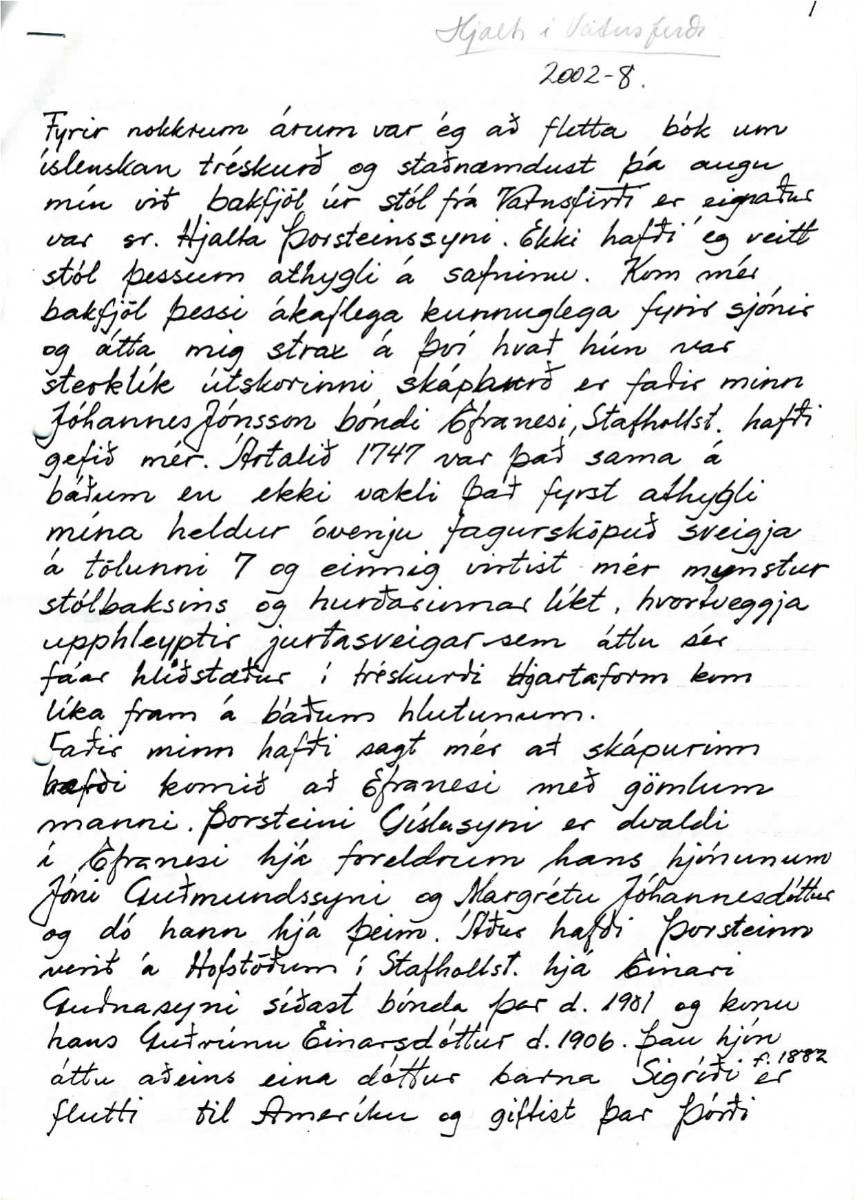 1
Hjalti í Vatnsfirði
2002-8.
Fyrir nokkrum árum var ég að fletta bók um
íslenskan tréskurð og staðnæmdust þá augu
mín við bakfjöl úr stól frá Vatnsfirði er eignaður
var sr. Hjalta Þorsteinssyni. Ekki hafði ég veitt
stól þessum athygli á safninu. Kom mér
bakfjöl þessi ákaflega kunnuglega fyrir sjónir
og átta mig strax á því hvað hún var
sterklík útskorinni skáphurð er faðir minn
Jóhannes Jónsson bóndi Efranesi, Stafholtst. hafði
gefið mér. Ártalið 1747 var það sama á
báðum en ekki vakti það fyrst athygli
mína heldur óvenju fagursköpuð sveigja
á tölunni 7 og einnig virtist mér mynstur
stólbaksins og hurðarinnar líkt, hvortveggja
upphleyptir jurtasveigar sem áttu sér
fáar hliðstæður í tréskurði Hjartaform kom
líka fram á báðum hlutunum.
Faðir minn hafði sagt mér að skápurinn
hefði komið að Efranesi með gömlum
manni. Þorsteini Gíslasyni er dvaldi
í Efranesi hjá foreldrum hans hjónunum
Jóni Guðmundssyni og Margrétu Jóhannesdóttur
og dó hann hjá þeim. Áður hafði Þorsteinn
verið á Hofstöðum í Stafholtst. hjá Einari
Guðnasyni síðast bónda þar d. 1901 og konu
hans Guðrúnu Einarsdóttur d. 1906. Þau hjón
áttu aðeins eina dóttur barna Sigríði f. 1882 er
flutti til Ameríku og giftist þar Þórði